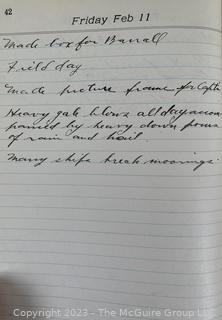 42
Friday Feb 11
Made box for Barrall
Field day
Made picture frame for Capt
Heavy gale blows all day accom
panied by heavy down pours
of rain and hail.
Many ships break moorings.
Copyright 2023 - The McGuire Group LLC